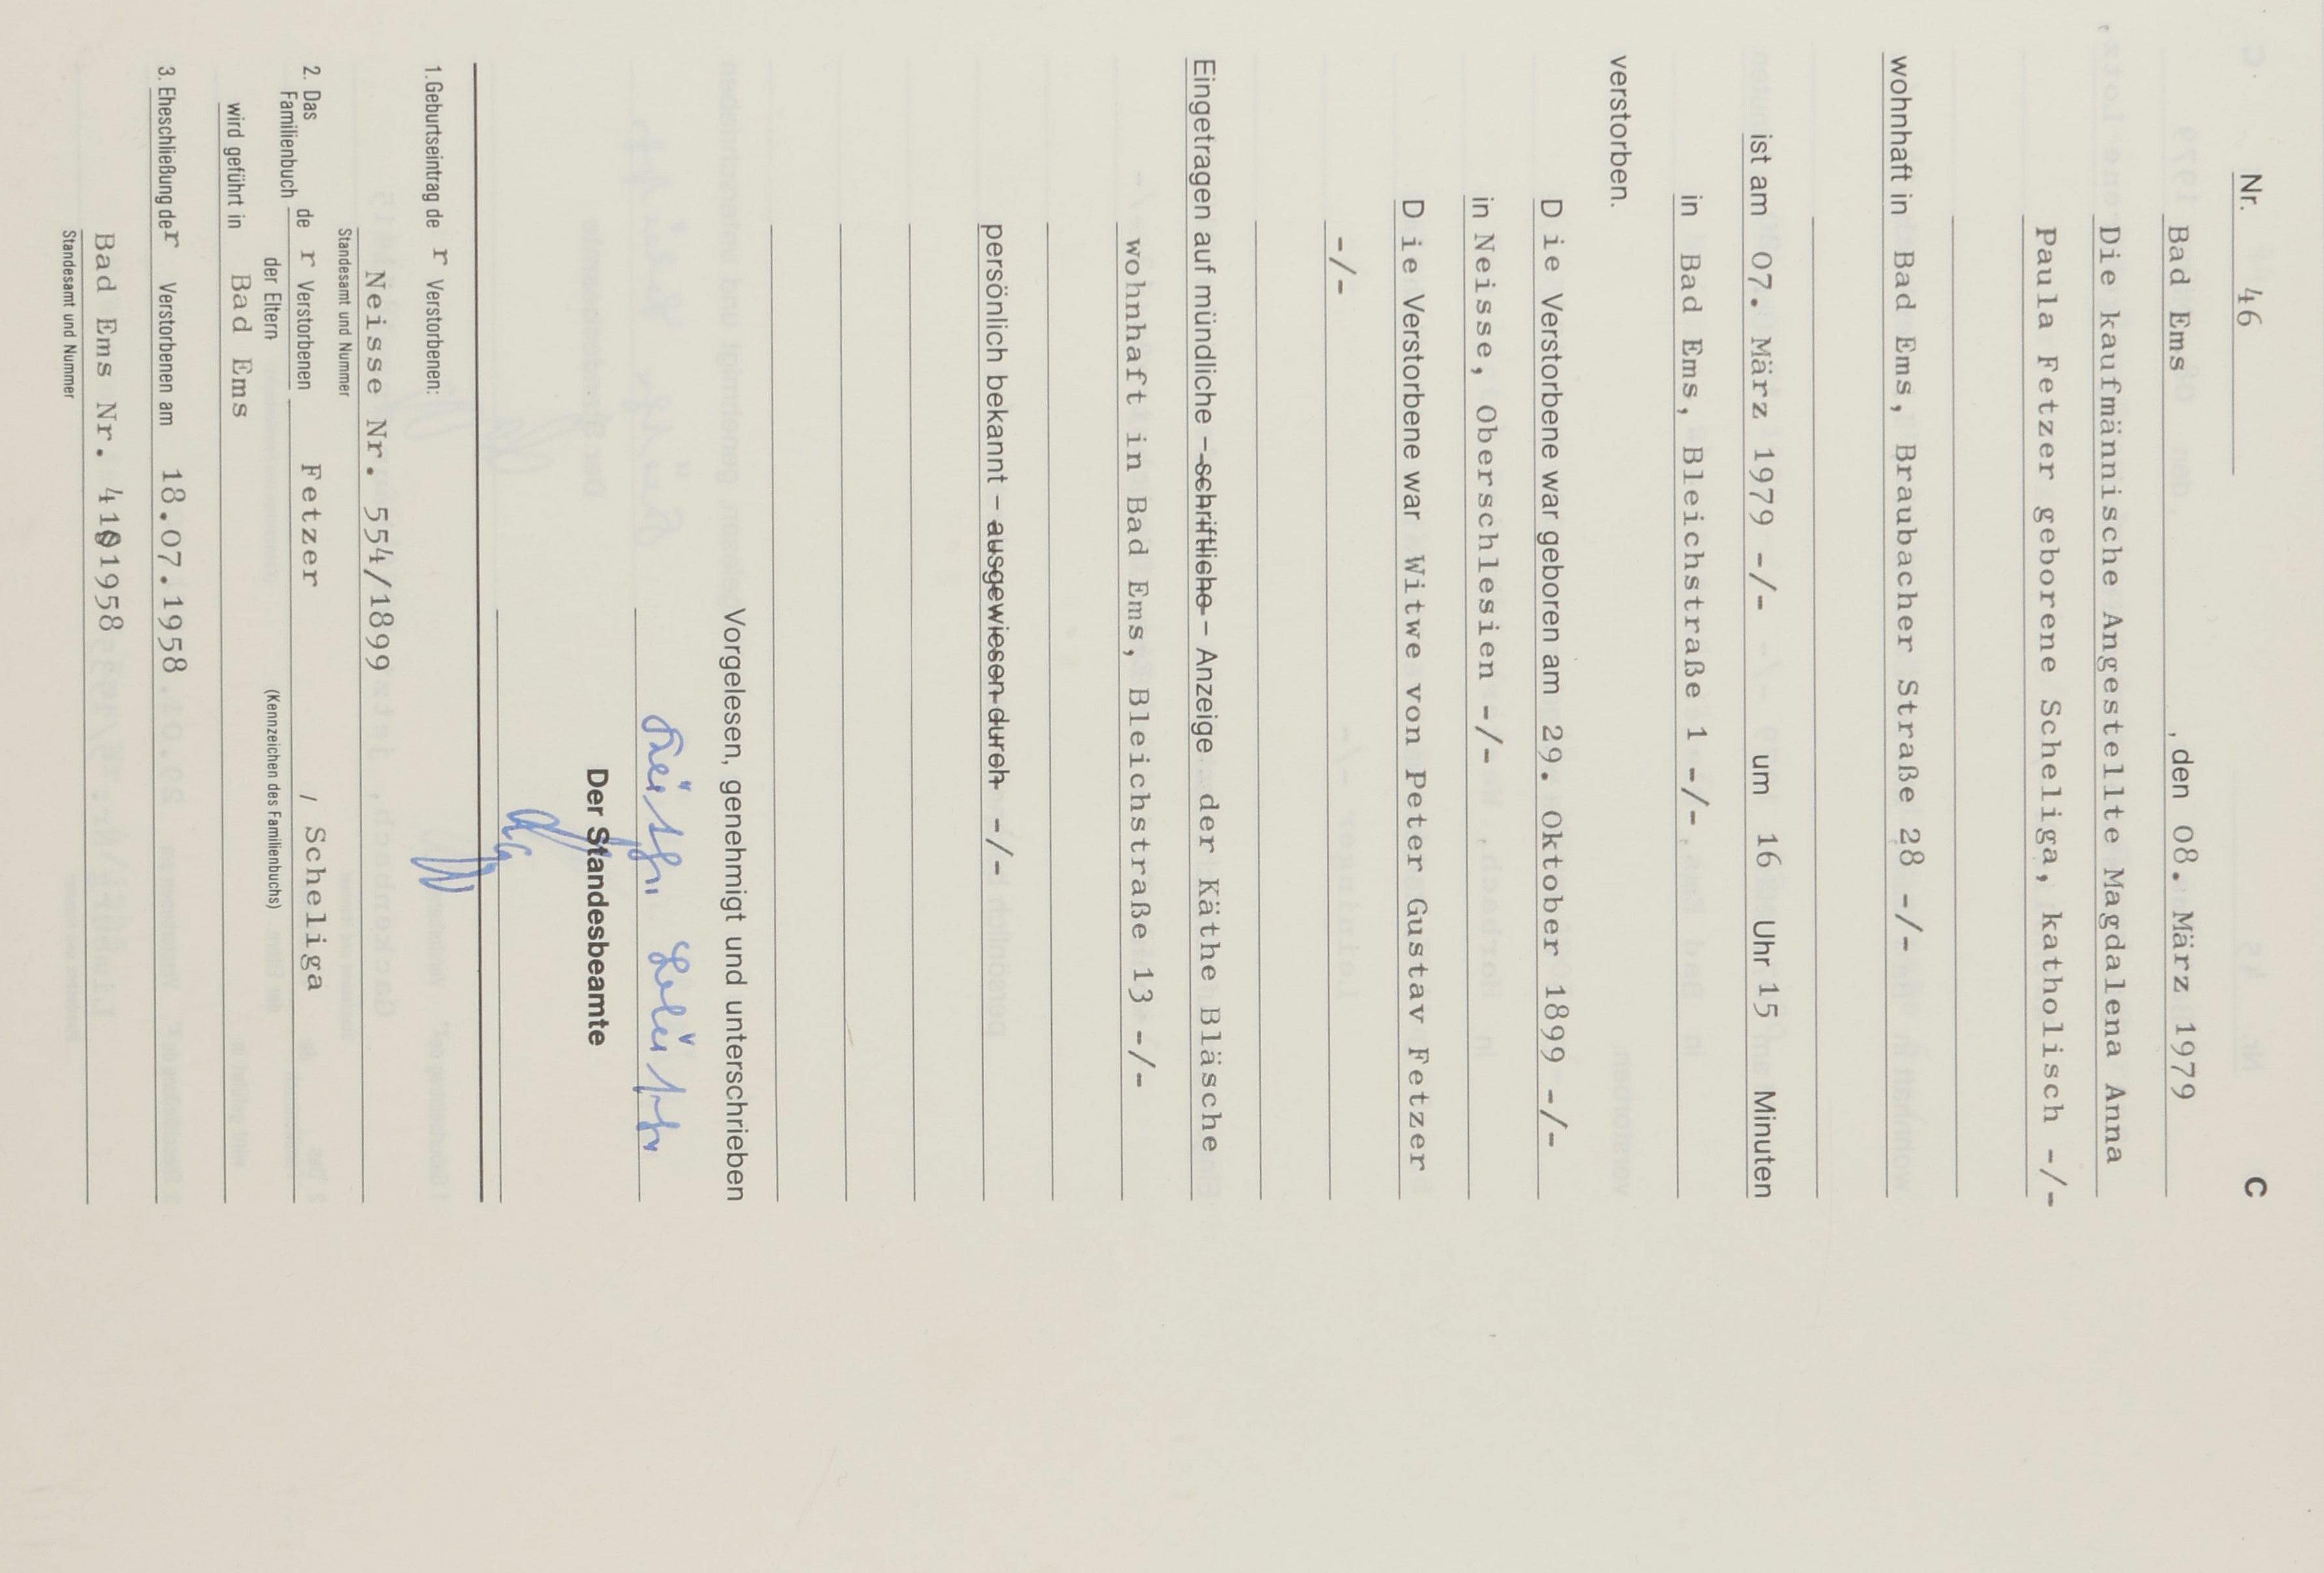 Nr. 46 C
Bad Ems , den 08. März 1979
Die kaufmännische Angestellte Magdalena Anna
Paula Fetzer geborene Scheliga, katholisch -/-
wohnhaft in Bad Ems, Braubacher Straße 28 -/-
ist am 07. März 1979 -/- um 16 Uhr 15 Minuten
in Bad Ems, Bleichstraße 1 -/-
verstorben.
D ie Verstorbene war geboren am 29. Oktober 1899 -/-
in Neisse, Oberschlesien -/-
D ie Verstorbene war Witwe von Peter Gustav Fetzer
-/-
Eingetragen auf mündliche – schriftliche – Anzeige der Käthe Bläsche
wohnhaft in Bad Ems, Bleichstraße 13 -/-
persönlich bekannt – ausgewiesen durch -/-
Vorgelesen, genehmigt und unterschrieben
Der Standesbeamte
1. Geburtseintrag de r Verstorbenen:
Neisse Nr. 554/1899
Standesamt und Nummer
2. Das Familienbuch de r Verstorbenen Fetzer / Scheliga
der Eltern (Kennzeichen des Familienbuchs)
wird geführt in Bad Ems
3. Eheschließung der Verstorbenen am 18.07.1958
Bad Ems Nr.
Standesamt und Nummer